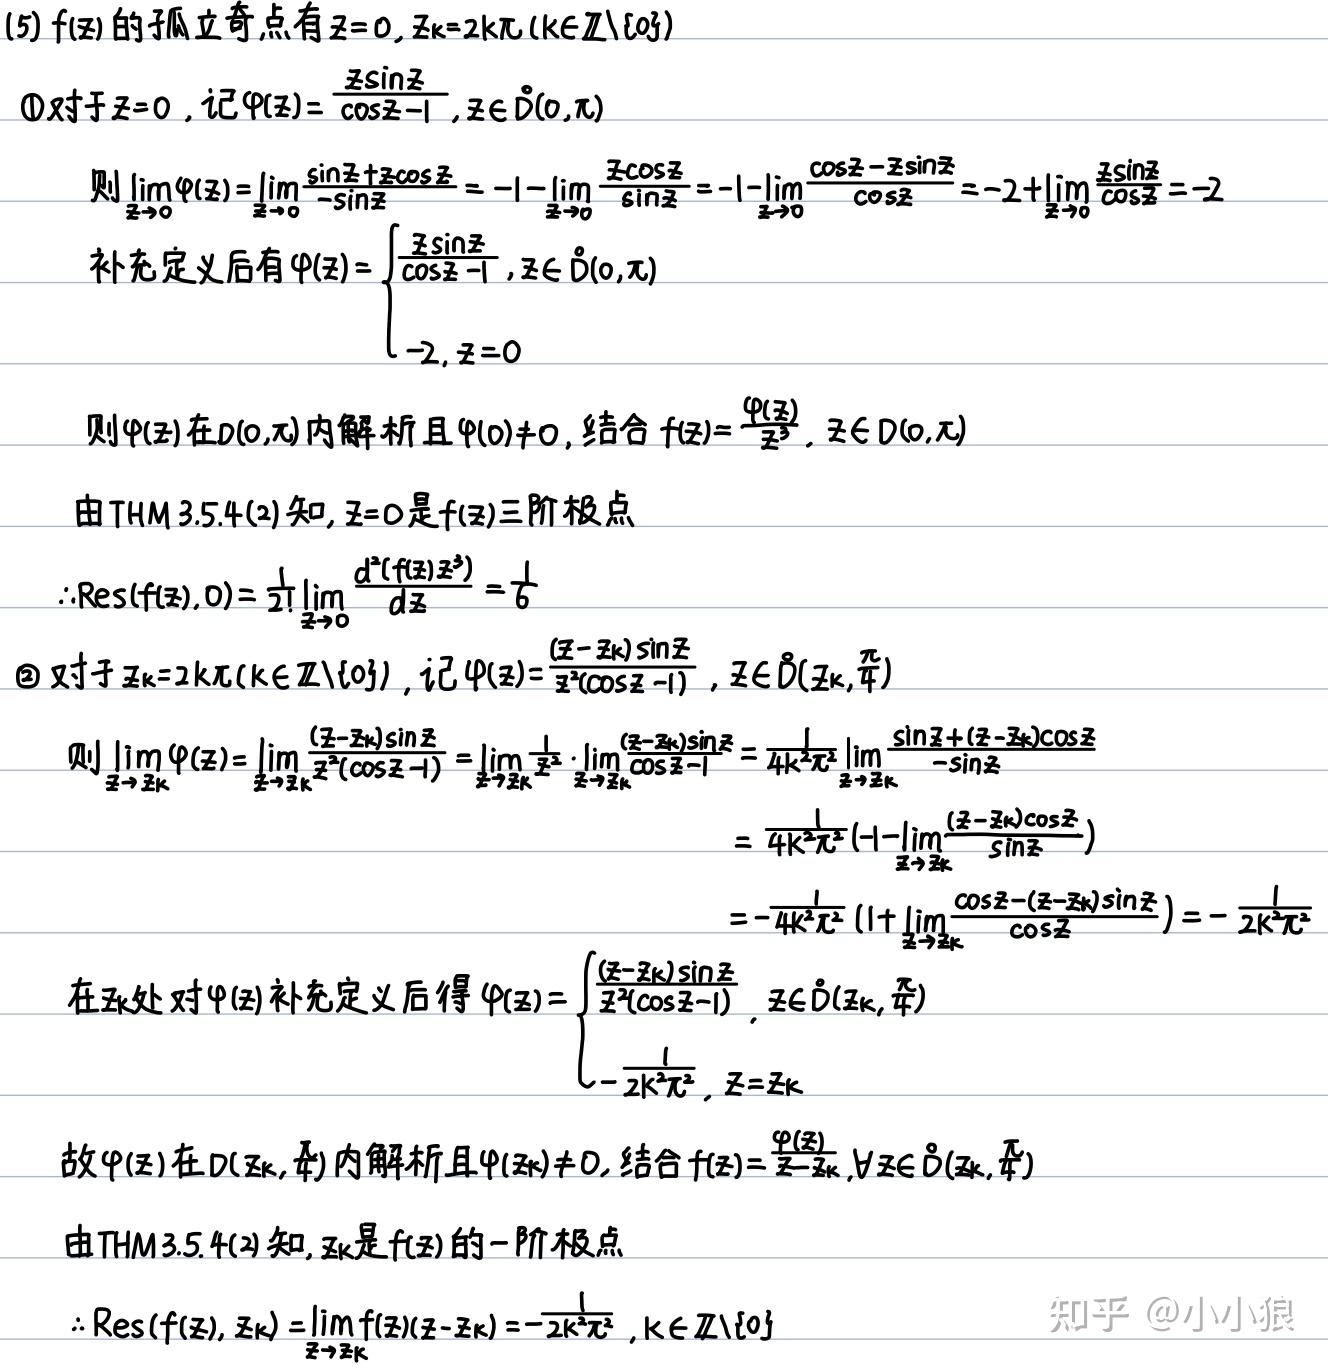 (5) f(z) 的孤立奇点有 z=0, zₖ=2kπ (k∈ℤ\{0})
①对于z=0, 记φ(z)= zsinz/(cosz-1), z∈D̊(0,π)
则 lim_{z→0} φ(z)= lim_{z→0} (sinz+zcosz)/(-sinz) = -1-lim_{z→0} zcosz/sinz = -1-lim_{z→0} (cosz-zsinz)/cosz = -2+lim_{z→0} zsinz/cosz = -2
补充定义后有 φ(z)= { zsinz/(cosz-1), z∈D̊(0,π)
-2, z=0
则φ(z)在D(0,π)内解析且φ(0)≠0, 结合 f(z)= φ(z)/z³, z∈D(0,π)
由THM 3.5.4(2)知, z=0是f(z)三阶极点
∴Res(f(z),0)= 1/2! lim_{z→0} d²(f(z)z³)/dz = 1/6
② 对于 zₖ=2kπ(k∈ℤ\{0}), 记φ(z)= (z-zₖ)sinz/(z²(cosz-1)), z∈D̊(zₖ, π/4)
则 lim_{z→zₖ} φ(z)= lim_{z→zₖ} (z-zₖ)sinz/(z²(cosz-1)) = lim_{z→zₖ} 1/z² · lim_{z→zₖ} (z-zₖ)sinz/(cosz-1) = 1/(4k²π²) lim_{z→zₖ} (sinz+(z-zₖ)cosz)/(-sinz)
= 1/(4k²π²) (-1-lim_{z→zₖ} (z-zₖ)cosz/sinz)
= -1/(4k²π²) (1+lim_{z→zₖ} (cosz-(z-zₖ)sinz)/cosz) = -1/(2k²π²)
在zₖ处对φ(z)补充定义后得 φ(z)= { (z-zₖ)sinz/(z²(cosz-1)), z∈D̊(zₖ, π/4)
-1/(2k²π²), z=zₖ
故φ(z)在D(zₖ, π/4)内解析且φ(zₖ)≠0, 结合f(z)= φ(z)/(z-zₖ), ∀z∈D̊(zₖ, π/4)
由THM 3.5.4(2)知, zₖ是f(z)的一阶极点
∴ Res(f(z), zₖ) = lim_{z→zₖ} f(z)(z-zₖ) = -1/(2k²π²), k∈ℤ\{0}
知乎 @小小狼